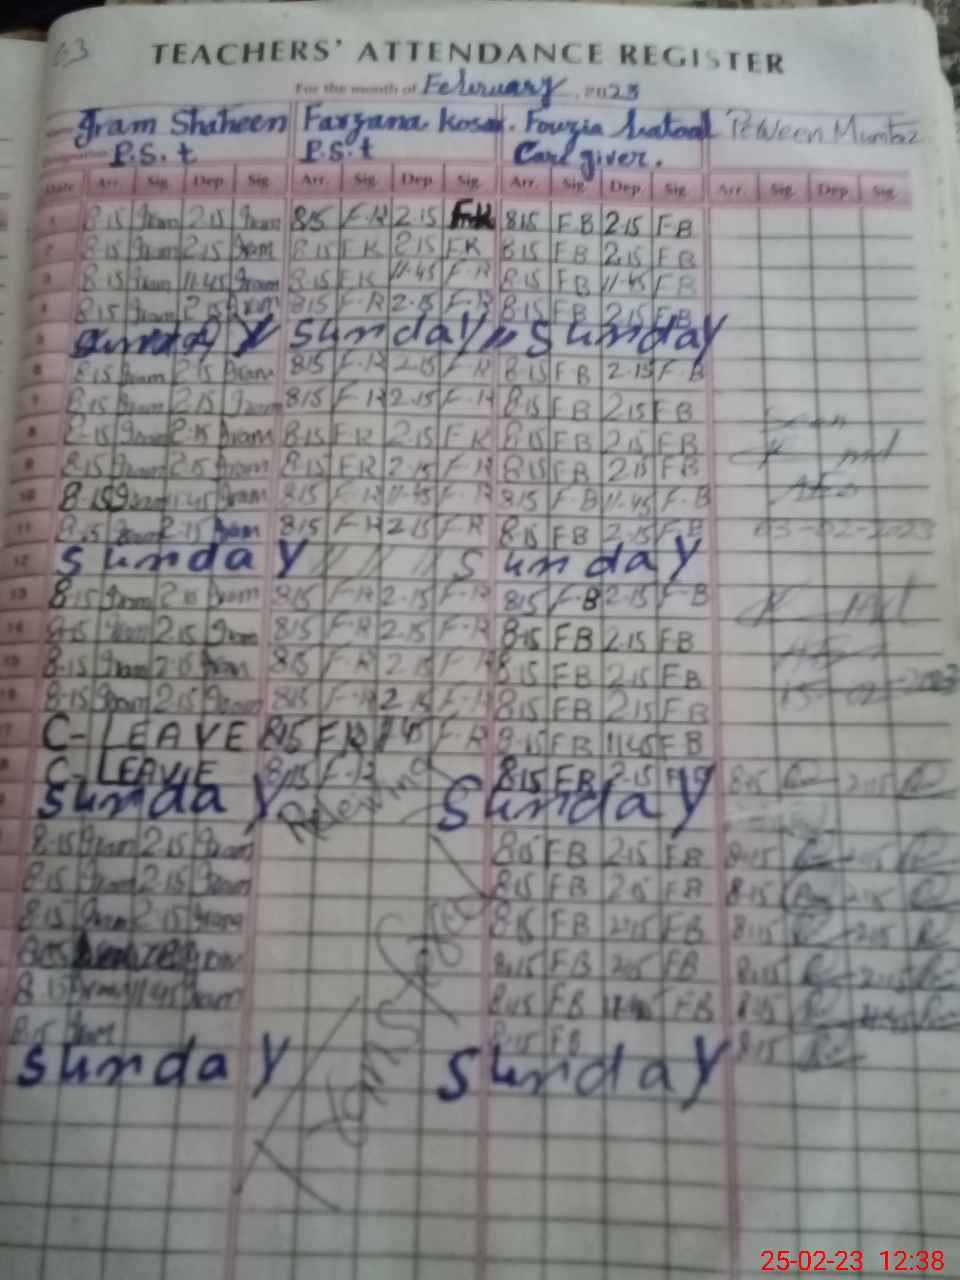 63
TEACHERS' ATTENDANCE REGISTER
For the month of February, 2023
Name Iram Shaheen Farzana Kosar. Fouzia Batool Perveen Mumtaz
Designation P.S.t P.S.t Care giver.
Date Arr. Sig. Dep. Sig. Arr. Sig. Dep. Sig. Arr. Sig. Dep. Sig. Arr. Sig. Dep. Sig.
1 8.15 Iram 2.15 Iram 8.15 F-K 2.15 F-K 8.15 F B 2.15 F-B
2 8.15 Iram 2.15 Iram 8.15 F.K 2.15 F.K 8.15 F B 2.15 F B
3 8.15 Iram 11.45 Iram 8.15 F.K 11.45 F-K 8.15 F B 11.45 F B
4 8.15 Iram 2.15 Iram 8.15 F-K 2.15 F-K 8.15 F B 2.15 F B
5 Sunday Sunday Sunday
6 8.15 Iram 2.15 Iram 8.15 F-K 2.15 F-K 8.15 F B 2.15 F-B
7 8.15 Iram 2.15 Iram 8.15 F-K 2.15 F-K 8.15 F B 2.15 F B
8 8.15 Iram 2.15 Iram 8.15 F K 2.15 F-K 8.15 F B 2.15 F B
9 8.15 Iram 2.15 Iram 8.15 F K 2.15 F-K 8.15 F B 2.15 F B
10 8.15 Iram 11.45 Iram 8.15 F-K 11.45 F-K 8.15 F-B 11.45 F-B
11 8.15 Iram 2.15 Iram 8.15 F-K 2.15 F-K 8.15 F B 2.15 F-B 03-02-2023
12 Sunday Sunday
13 8.15 Iram 2.15 Iram 8.15 F-K 2.15 F-K 8.15 F-B 2.15 F-B
14 8.15 Iram 2.15 Iram 8.15 F-K 2.15 F-K 8.15 F B 2.15 F B
15 8.15 Iram 2.15 Iram 8.15 F-K 2.15 F-K 8.15 F B 2.15 F B
16 8.15 Iram 2.15 Iram 8.15 F-K 2.15 F-K 8.15 F B 2.15 F B 15-02-2023
17 C- LEAVE 8.15 F K 11.45 F-K 8.15 F B 11.45 F B
18 C- LEAVE 8.15 F-K 8.15 F B 2.15 F B 8.15 2.15
Sunday Releiving Sunday
8.15 Iram 2.15 Iram 8.15 F B 2.15 F B 8.15 2.15
8.15 Iram 2.15 Iram 8.15 F B 2.15 F B 8.15 2.15
8.15 Iram 2.15 Iram 8.15 F B 2.15 F B 8.15 2.15
8.15 Iram 8.15 F B 2.15 F B 8.15 2.15
8.15 Iram 11.45 Iram 8.15 F B 11.45 F B 8.15 11.45
8.15 Iram 8.15 F B 8.15
Sunday Sunday
Transfer
25-02-23 12:38